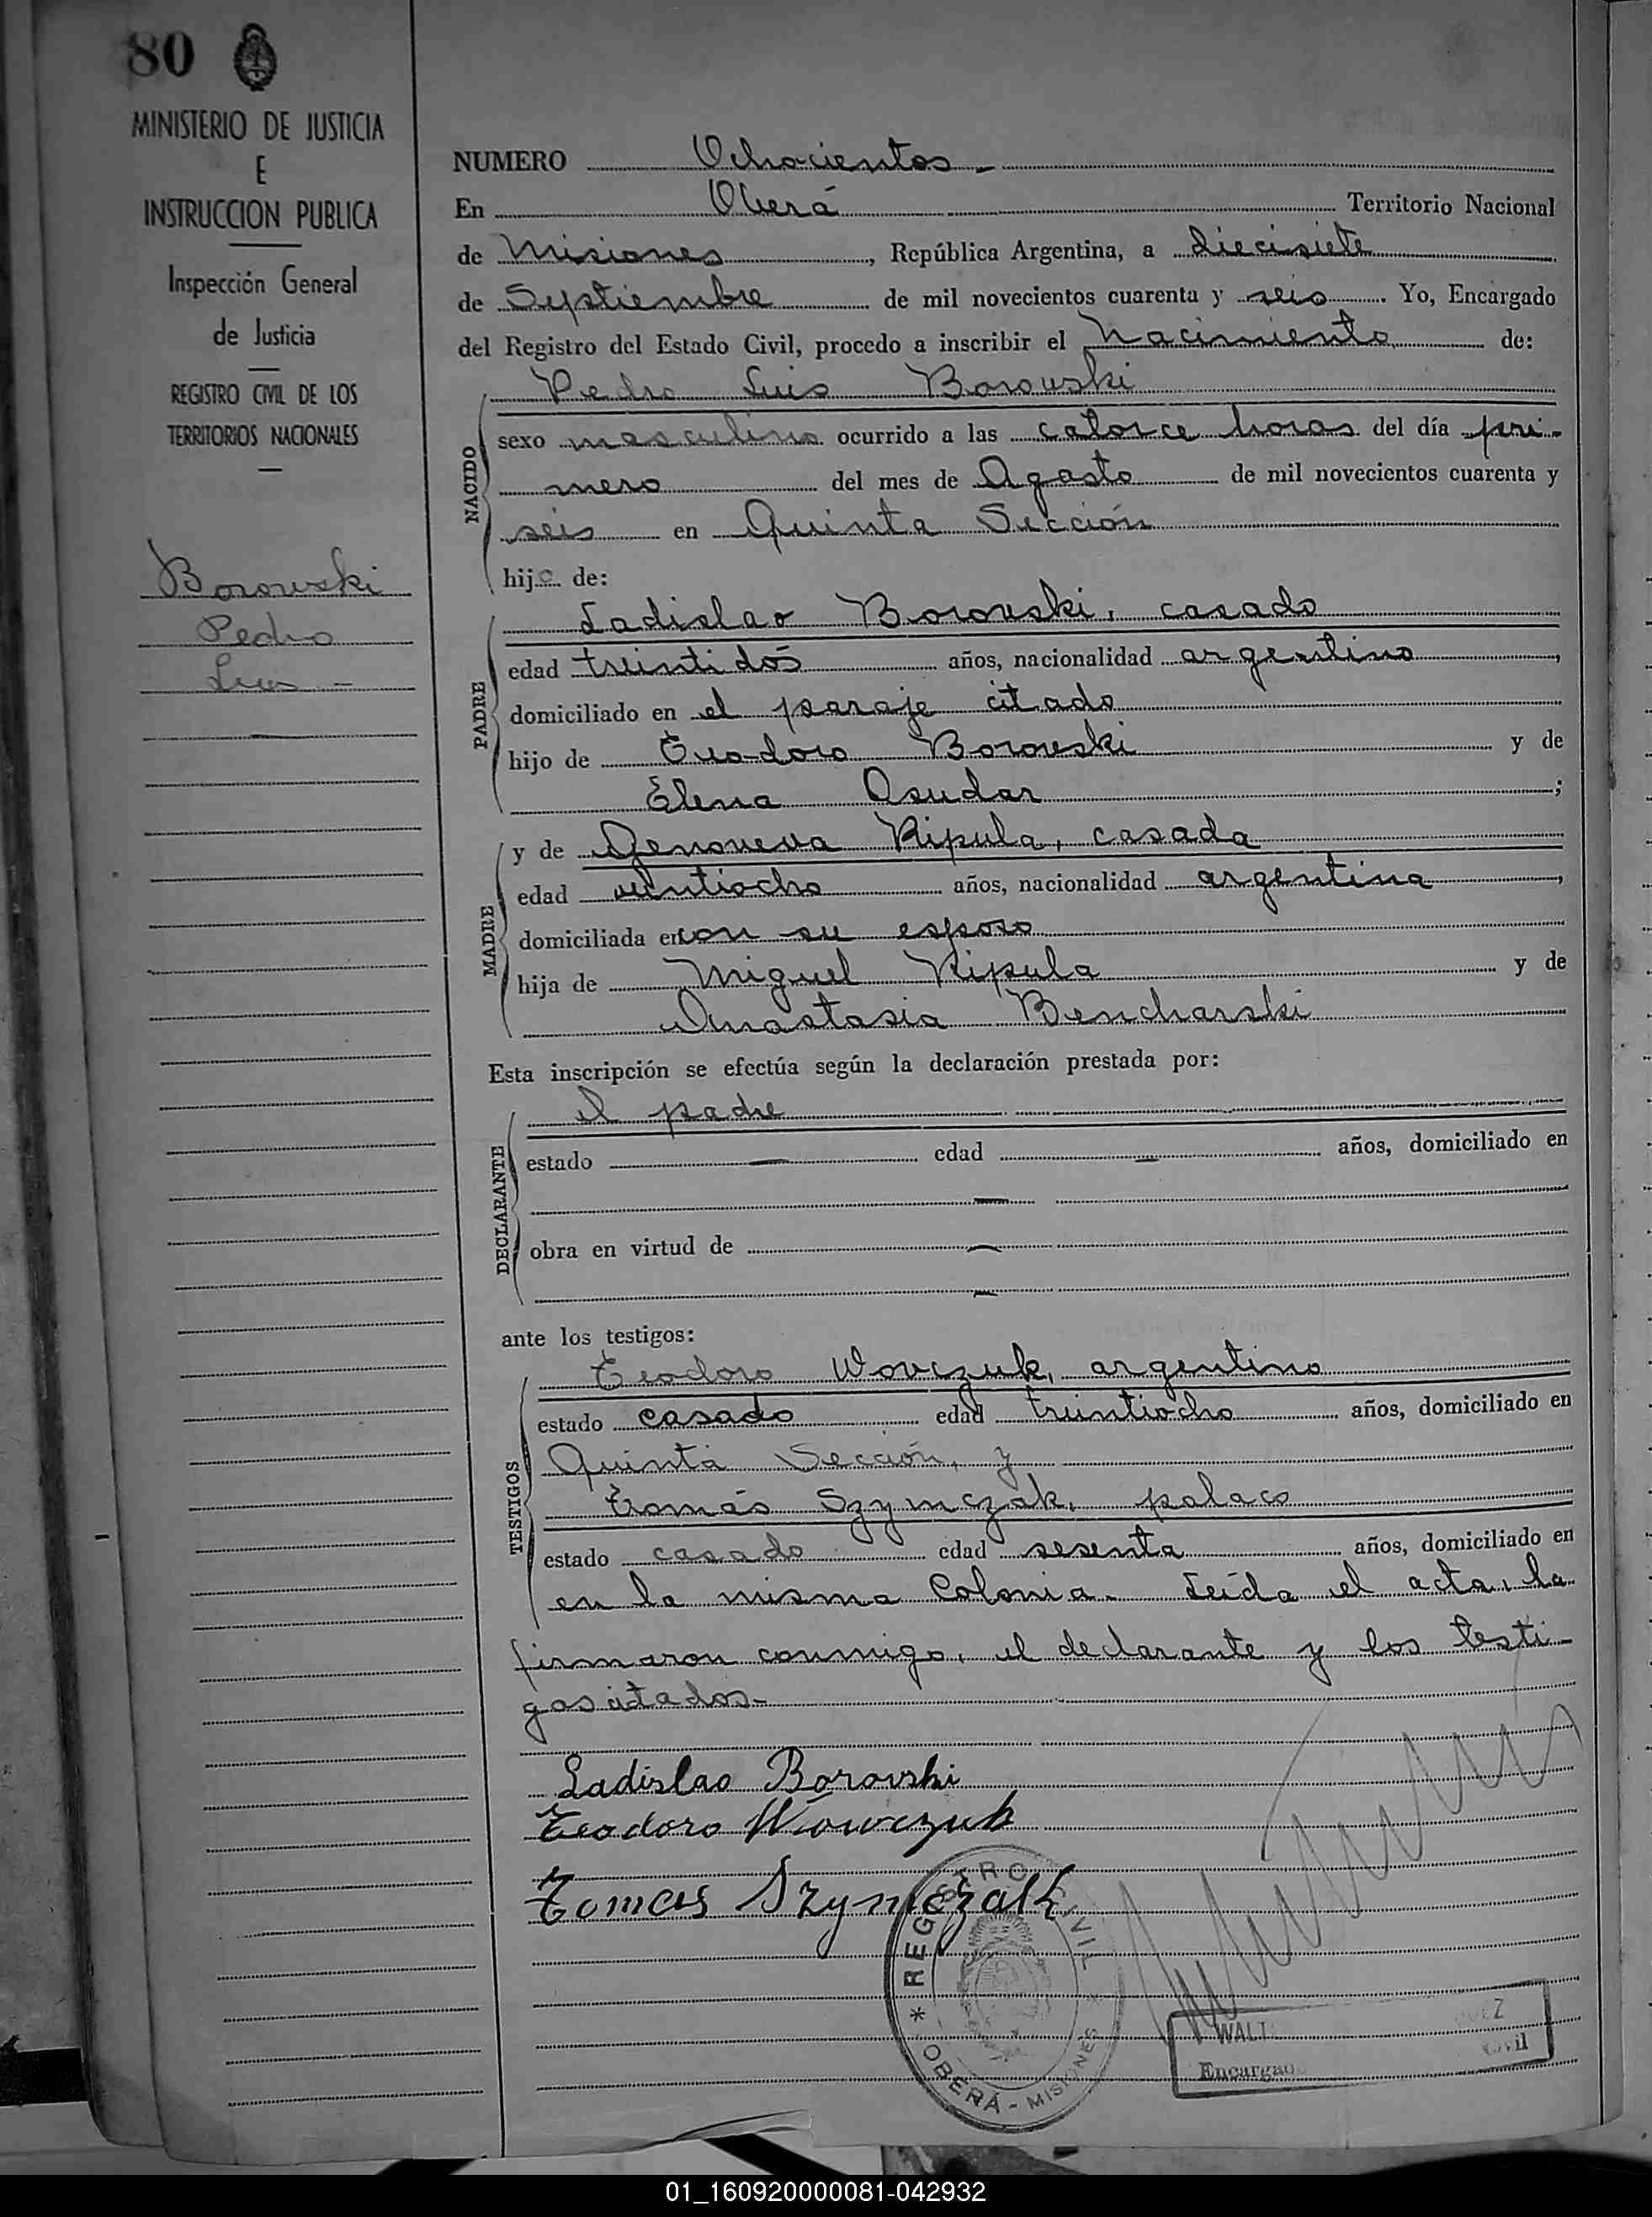 80
MINISTERIO DE JUSTICIA
E
INSTRUCCION PUBLICA
Inspección General
de Justicia
REGISTRO CIVIL DE LOS
TERRITORIOS NACIONALES
Borowski
Pedro
Luis -
NUMERO Ochocientos -
En Oberá Territorio Nacional
de Misiones, República Argentina, a diecisiete
de Septiembre de mil novecientos cuarenta y seis. Yo, Encargado
del Registro del Estado Civil, procedo a inscribir el Nacimiento de:
NACIDO
Pedro Luis Borowski
sexo masculino ocurrido a las catorce horas del día pri-
mero del mes de Agosto de mil novecientos cuarenta y
seis en Quinta Sección
hijo de:
PADRE
Ladislao Borowski, casado
edad treintidós años, nacionalidad argentino,
domiciliado en el paraje citado
hijo de Borowski y de
Elena Osudar;
MADRE
y de Genoveva Kipula, casada
edad veintiocho años, nacionalidad argentina,
domiciliada en con su esposo
hija de Miguel Kipula y de
Anastasia Bencharski
Esta inscripción se efectúa según la declaración prestada por:
DECLARANTE
el padre
estado — edad — años, domiciliado en
—
obra en virtud de —
—
ante los testigos:
TESTIGOS
Teodoro Wovczuk, argentino
estado casado edad treintiocho años, domiciliado en
Quinta Sección, y
Tomás Szymczak, polaco
estado casado edad sesenta años, domiciliado en
en la misma Colonia. Leída el acta, la
firmaron conmigo, el declarante y los testi-
gos citados-
Ladislao Borowski
Teodoro Wowczuk
Tomas Szymczalk
* REGISTRO CIVIL *
OBERÁ - MISIONES
Civil
01_160920000081-042932